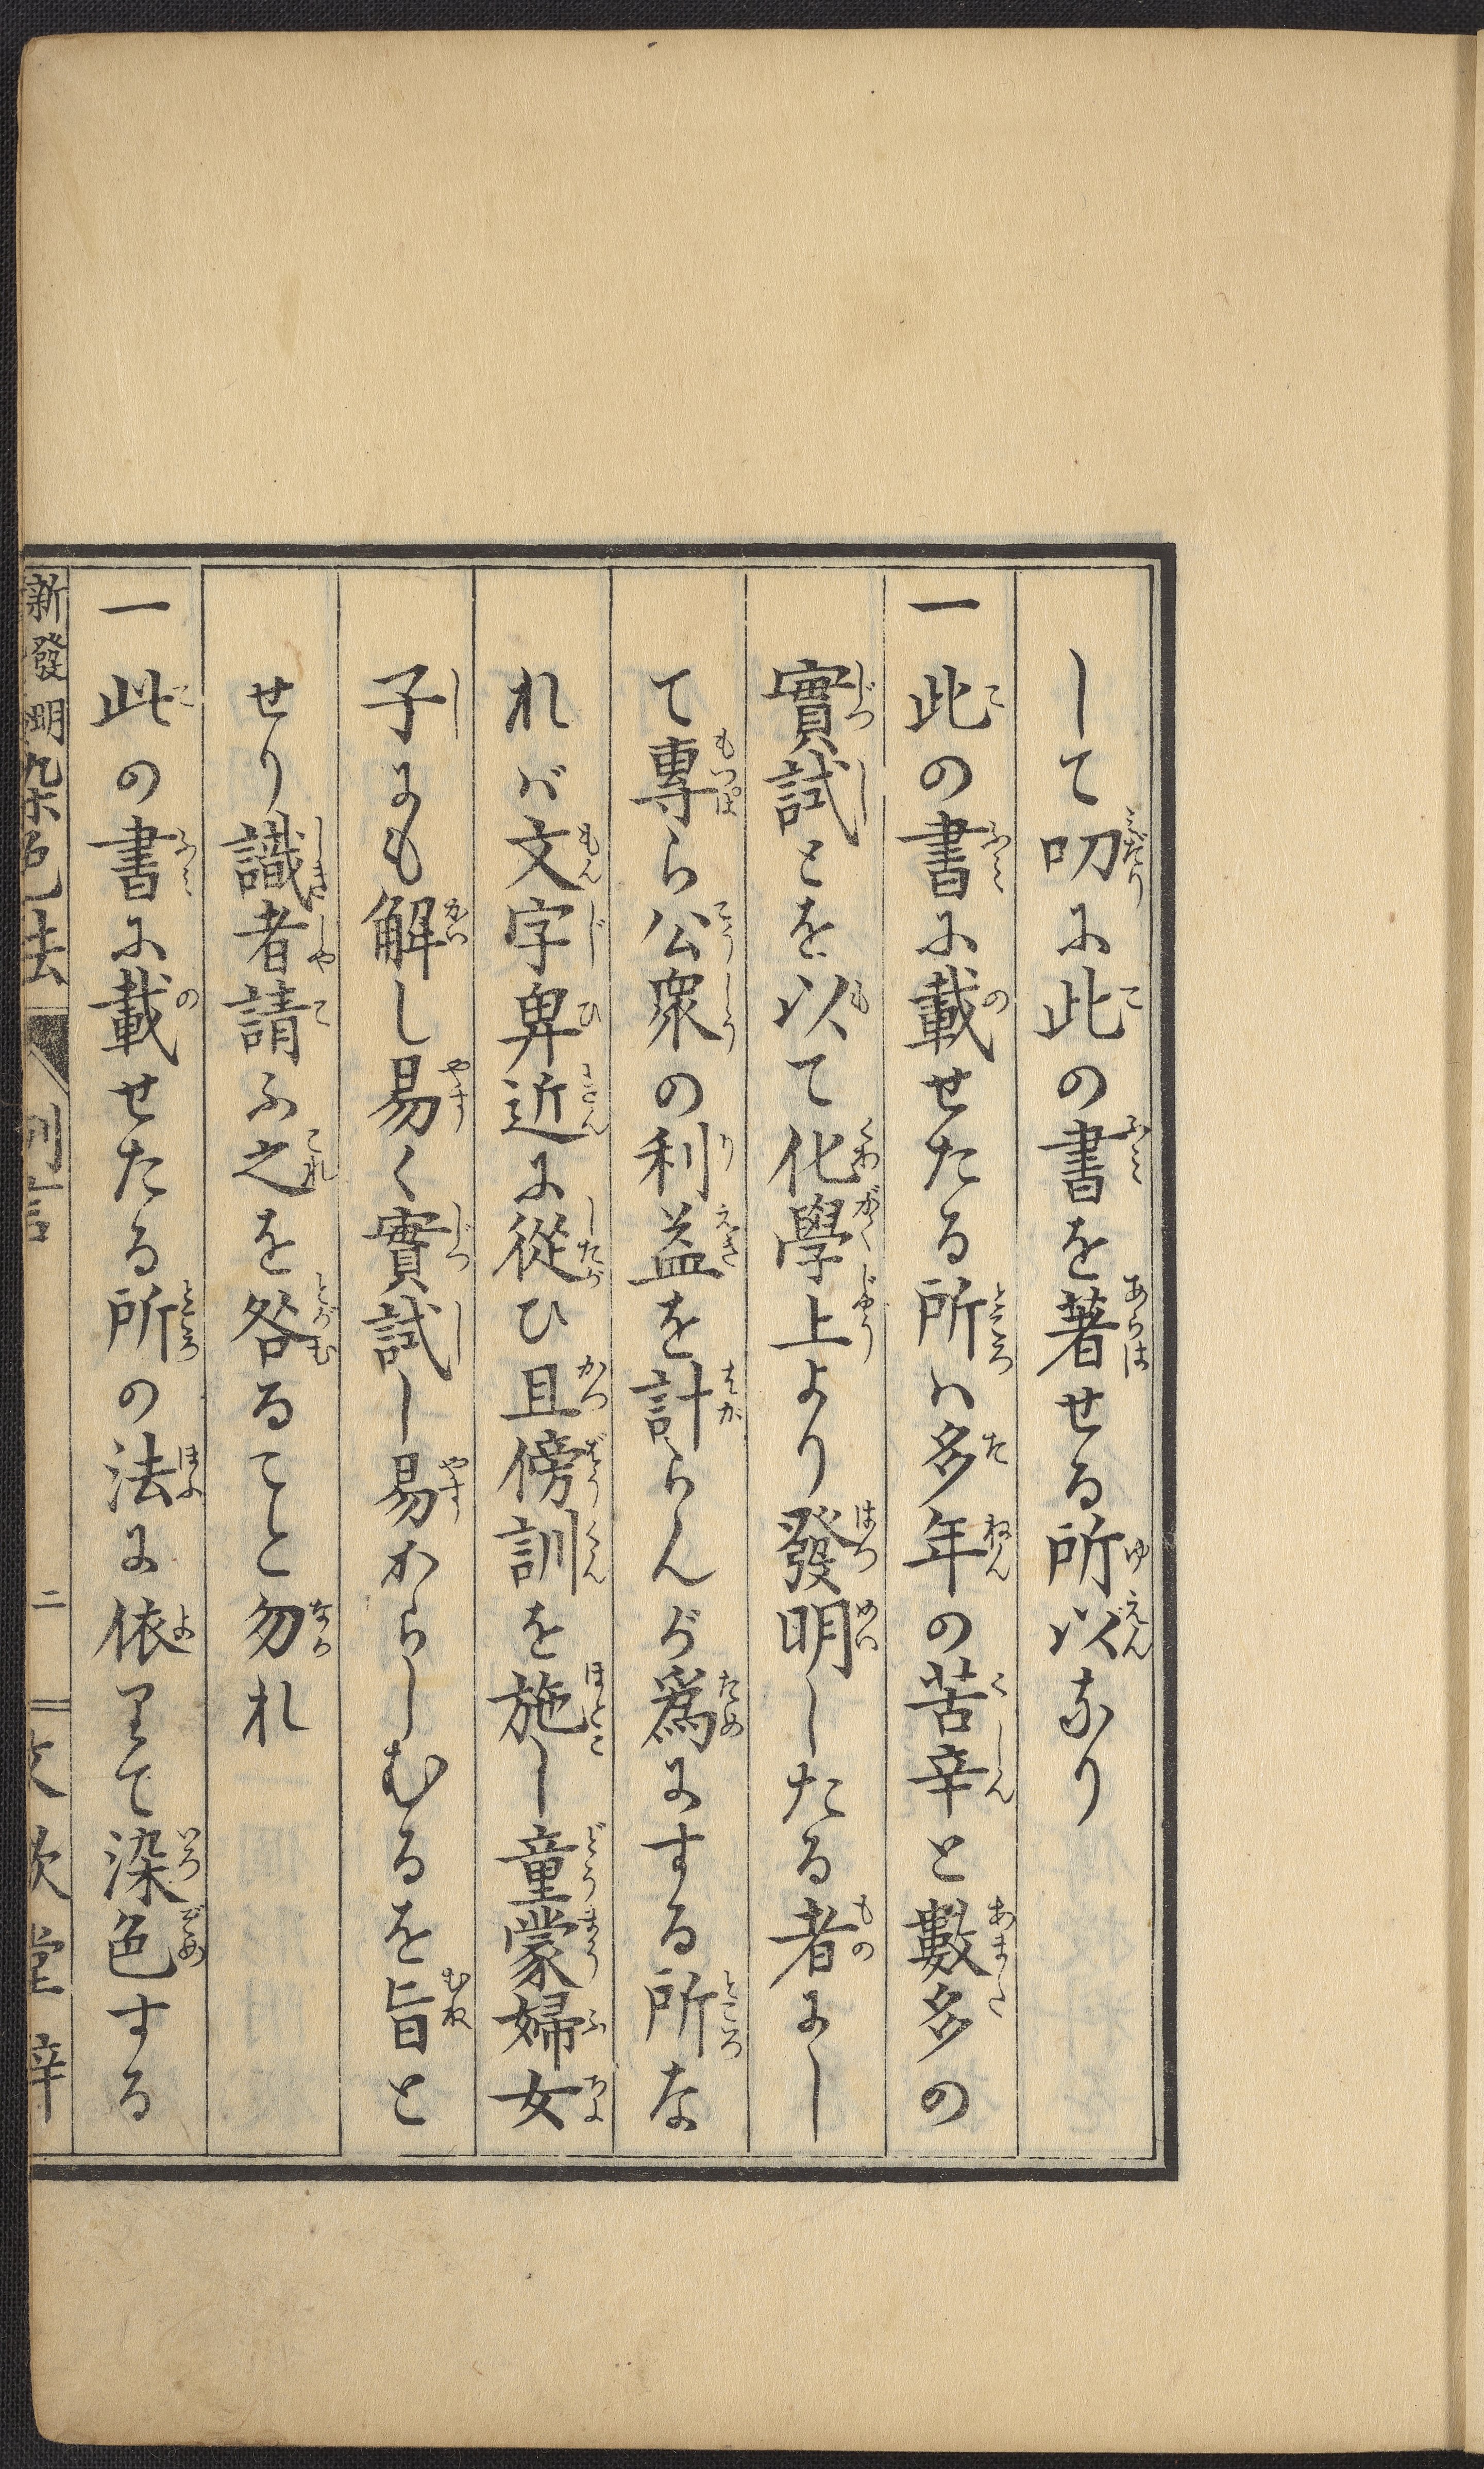 して叨に此の書を著せる所以なり
一此の書に載せたる所ハ多年の苦辛と數多の
實試とを以て化學上より發明したる者にし
て專ら公衆の利益を計らんが爲にする所な
れバ文字卑近に從ひ且傍訓を施し童蒙婦女
子にも解し易く實試し易からしむるを旨と
せり識者請ふ之を咎ることと勿れ
一此の書に載せたる所の法に依りて染色する
新發明染色法 例言 二